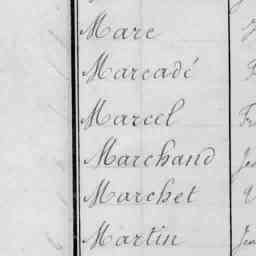 Marc
Marcadé
Marcel
Marchand
Marchet
Martin